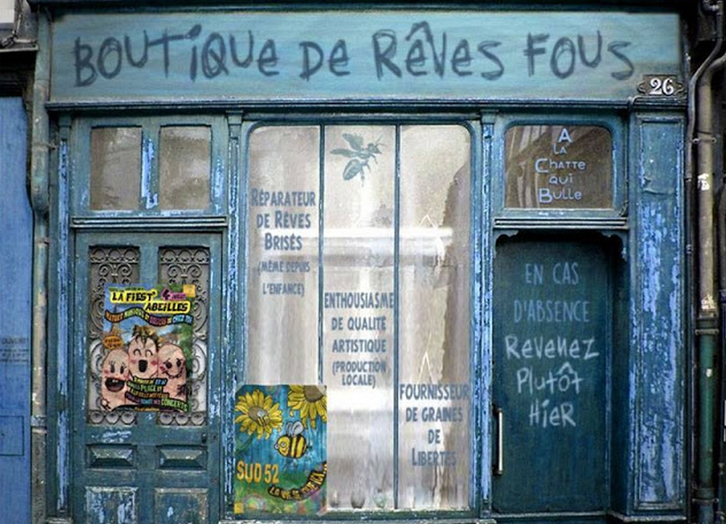 BOUTIQUE DE RÊVES FOUS
26
A
LA
CHATTE
QUI
BULLE
RÉPARATEUR
DE RÊVES
BRISÉS
(MÊME DEPUIS
L'ENFANCE)
ENTHOUSIASME
DE QUALITÉ
ARTISTIQUE
(PRODUCTION
LOCALE)
FOURNISSEUR
DE GRAINES
DE
LIBERTÉS
EN CAS
D'ABSENCE
REVENEZ
PLUTÔT
HIER
LA FIEST'
ABEILLES
CONCERTS
SUD 52